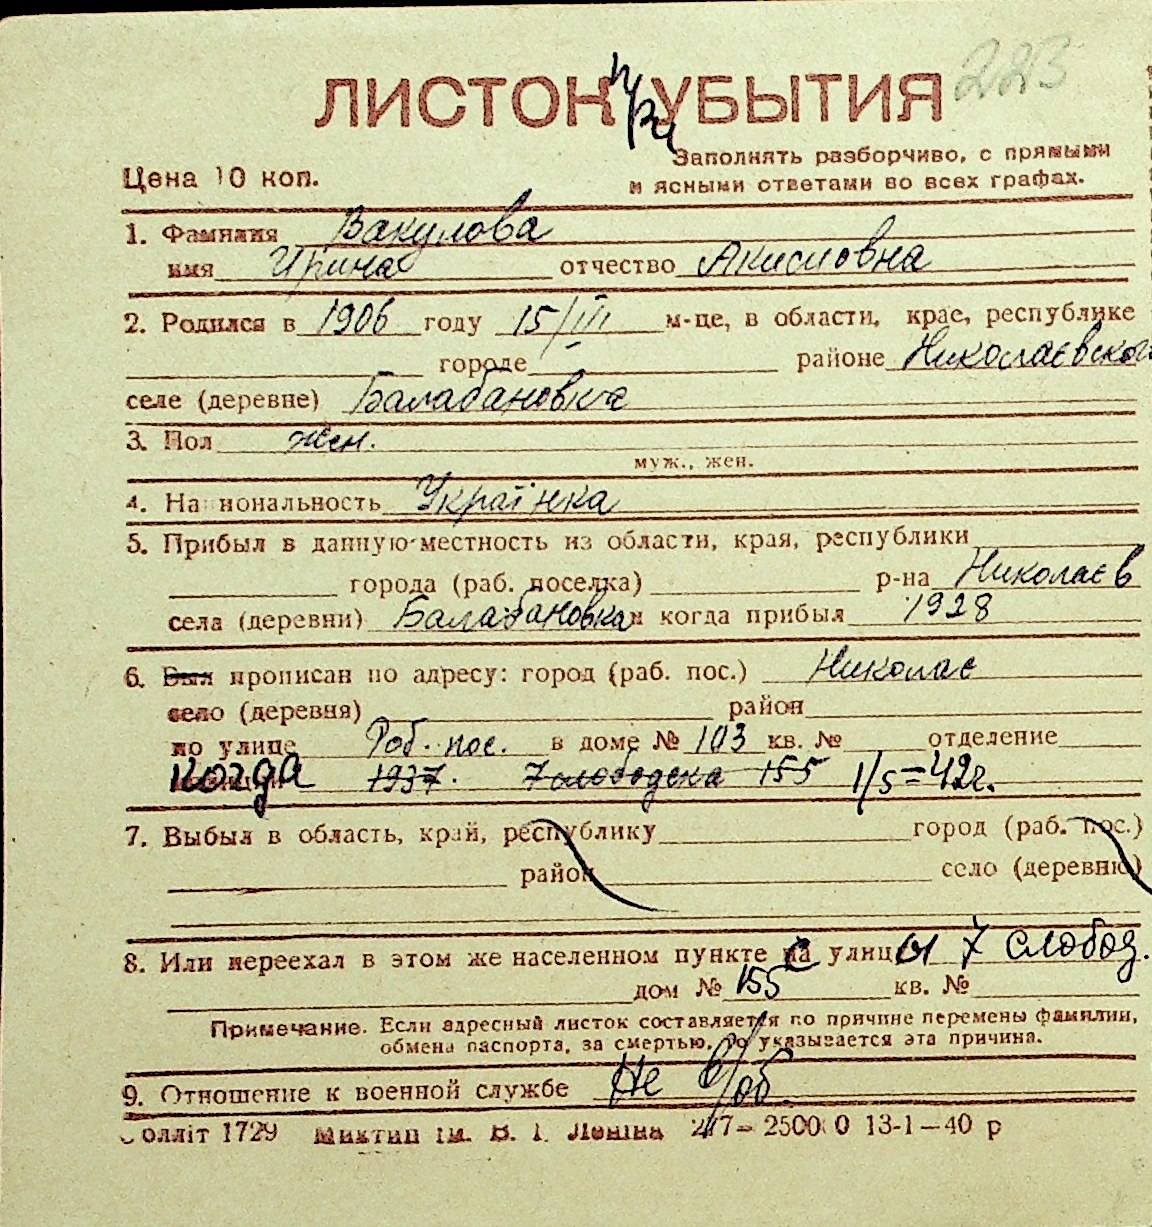 223
ЛИСТОК УБЫТИЯ
Цена 10 коп.
Заполнять разборчиво, с прямыми
и ясными ответами во всех графах.
1. Фамилия Вакулова
имя Ирина отчество Акисиовна
2. Родился в 1906 году 15/III м-це, в области, крае, республике
городе районе Николаєвског
селе (деревне) Балабановка
3. Пол жен.
муж., жен.
4. Национальность Українка
5. Прибыл в данную местность из области, края, республики
города (раб. поселка) р-на Николаєв
села (деревни) Балабановка и когда прибыл 1928
6. Был прописан по адресу: город (раб. пос.) Николає
село (деревня) район
по улице Роб. пос. в доме № 103 кв. № отделение
когда 1937. 7 слободска 155 1/5=42г.
7. Выбыл в область, край, республику город (раб. пос.)
район село (деревню)
8. Или переехал в этом же населенном пункте с улицы 7 слобод.
дом № 155 кв. №
Примечание. Если адресный листок составляется по причине перемены фамилии,
обмена паспорта, за смертью, то указывается эта причина.
9. Отношение к военной службе Не в/об.
олліт 1729 Миктип ім. В. І. Леніна 13-1—40 р